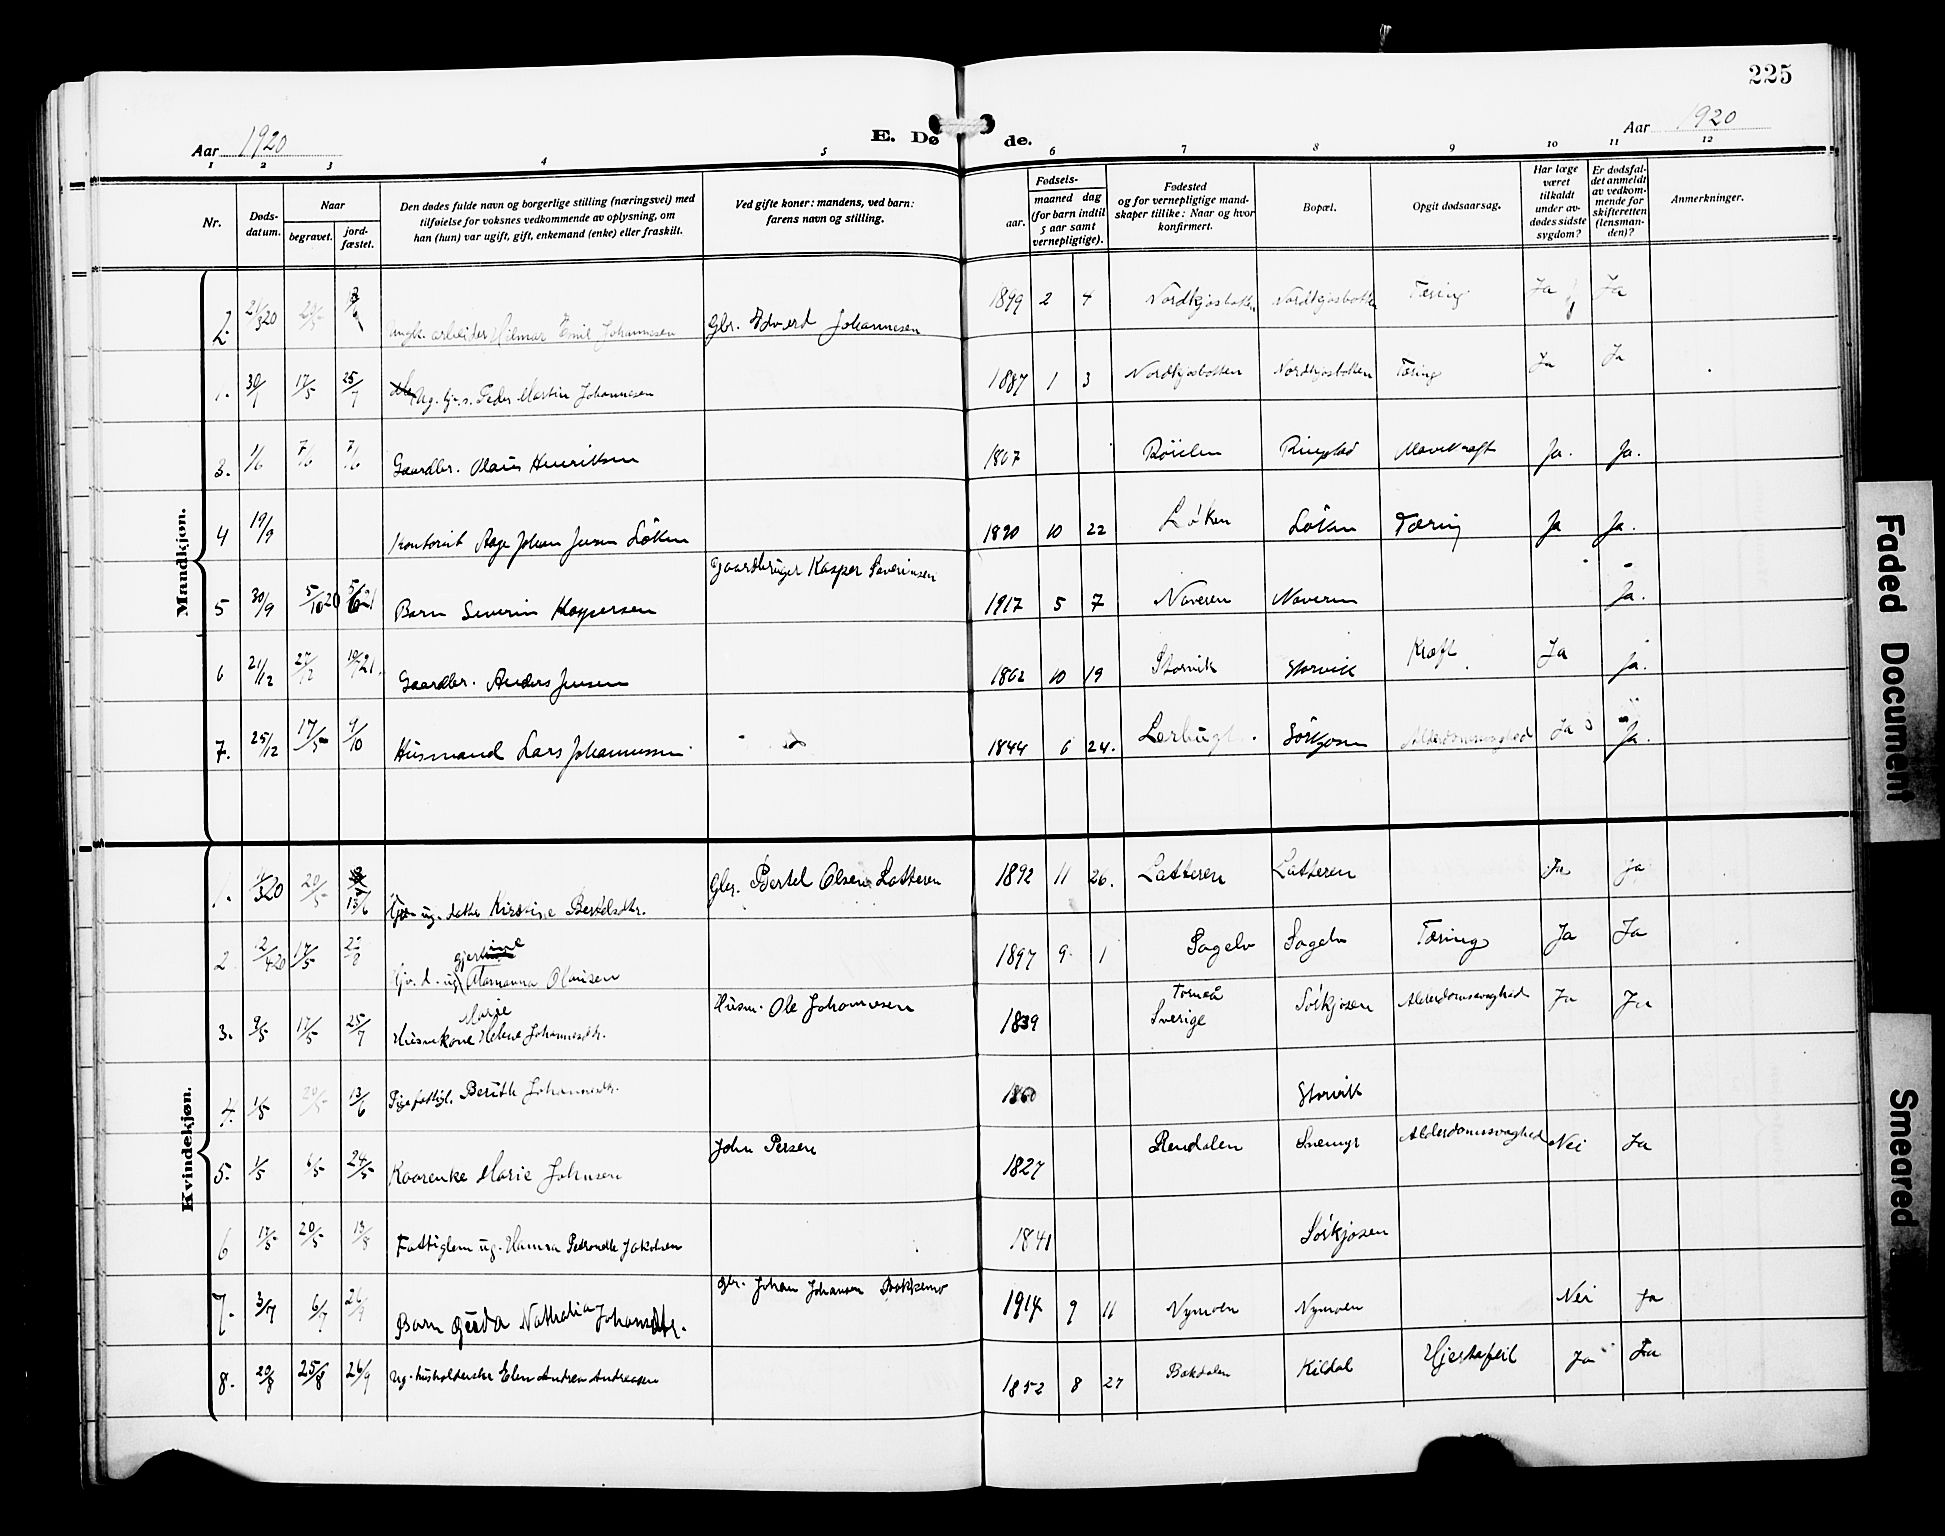 225
Aar 1920
E. Dø de.
Aar 1920
1 2 3 4 5 6 7 8 9 10 11 12
Nr.
Døds-
datum.
Naar
begravet.
jord-
fæstet.
Den dødes fulde navn og borgerlige stilling (næringsvei) med
tilføielse for voksnes vedkommende av oplysning, om
han (hun) var ugift, gift, enkemand (enke) eller fraskilt.
Ved gifte koner: mandens, ved barn:
farens navn og stilling.
Fødsels-
aar.
maaned dag
(for barn indtil
5 aar samt
vernepligtige).
Fødested
og for vernepligtige mand-
skaper tillike: Naar og hvor
konfirmert.
Bopæl.
Opgit dødsaarsag.
Har læge
været
tilkaldt
under av-
dødes sidste
sygdom?
Er dødsfal-
det anmeldt
av vedkom-
mende for
skifteretten
(lensman-
den)?
Anmerkninger.
Mandkjøn.
2. 21/3 20 arbeider Hilmar Emil Johannesen Gbr. Edverd Johannesen 1899 2 4 Nordkjosbotten Nordkjosbotten Tæring Ja Ja
1. 30/1 17/5 25/7 Ug. Peder Martin Johannesen 1887 1 3 Nordkjosbotten Nordkjosbotten Tæring Ja Ja
3. 1/6 7/6 7/6 Gaardbr. Olaus Henriksen 1867 Ringstad Mavekræft Ja. Ja.
4 19/9 Kontorist Aage Johan Jensen Løken 1890 10 22 Løken Løken Tæring Ja Ja.
5 30/9 5/10 20 5/6 21 Barn Severin Kaspersen Gaardbruger Kasper Severinsen 1917 5 7 Naveren Naveren Ja.
6 21/12 27/12 Gaardbr. Anders Jensen 1862 10 19 Storvik Storvik Kræft Ja Ja.
7. 25/12 17/5 9/10 Husmand Lars Johannessen 1844 6 24. Sörkjosen Alderdomssvaghed Ja Ja.
Kvindekjøn.
1. 20/5 13/6 ug. datter Kirstine Bertelsdtr. Gbr. Bertel Olsen Latteren 1892 11 26. Latteren Latteren Ja Ja
2 2/4 20 17/5 Gjertine Marianna Olausen 1897 9 1 Sagelv Sagelv Tæring Ja Ja
3. 9/5 17/5 25/7 Husmkone Marie Helene Johannesdtr. Husm. Ole Johannesen 1839 Torneå Sverige Sörkjosen Alderdomssvaghed Ja Ja
4. 1/5 20/5 13/6 Berithe Johannesdtr. 1860 Storvik
5. 1/5 6/5 24/5 Kaarenke Marie Johnsen John Persen 1827 Rendalen Snemyr Alderdomssvaghed Nei Ja
6 17/5 20/5 13/8 Fattiglem ug. Hanna Petronelle Jakobsen 1841 Sörkjosen
7. 3/7 6/7 26/9 Barn Gerda Nathalia Johansdtr. Gbr. Johan Johansen 1914 9 11 Nymoen Nymoen Nei Ja
8. 20/8 25/8 26/9 Ug. husholderske Elen Andrea Andreasen 1852 8 27 Bakdalen Kildal Hjertefeil Ja Ja
Faded Document
Smeared